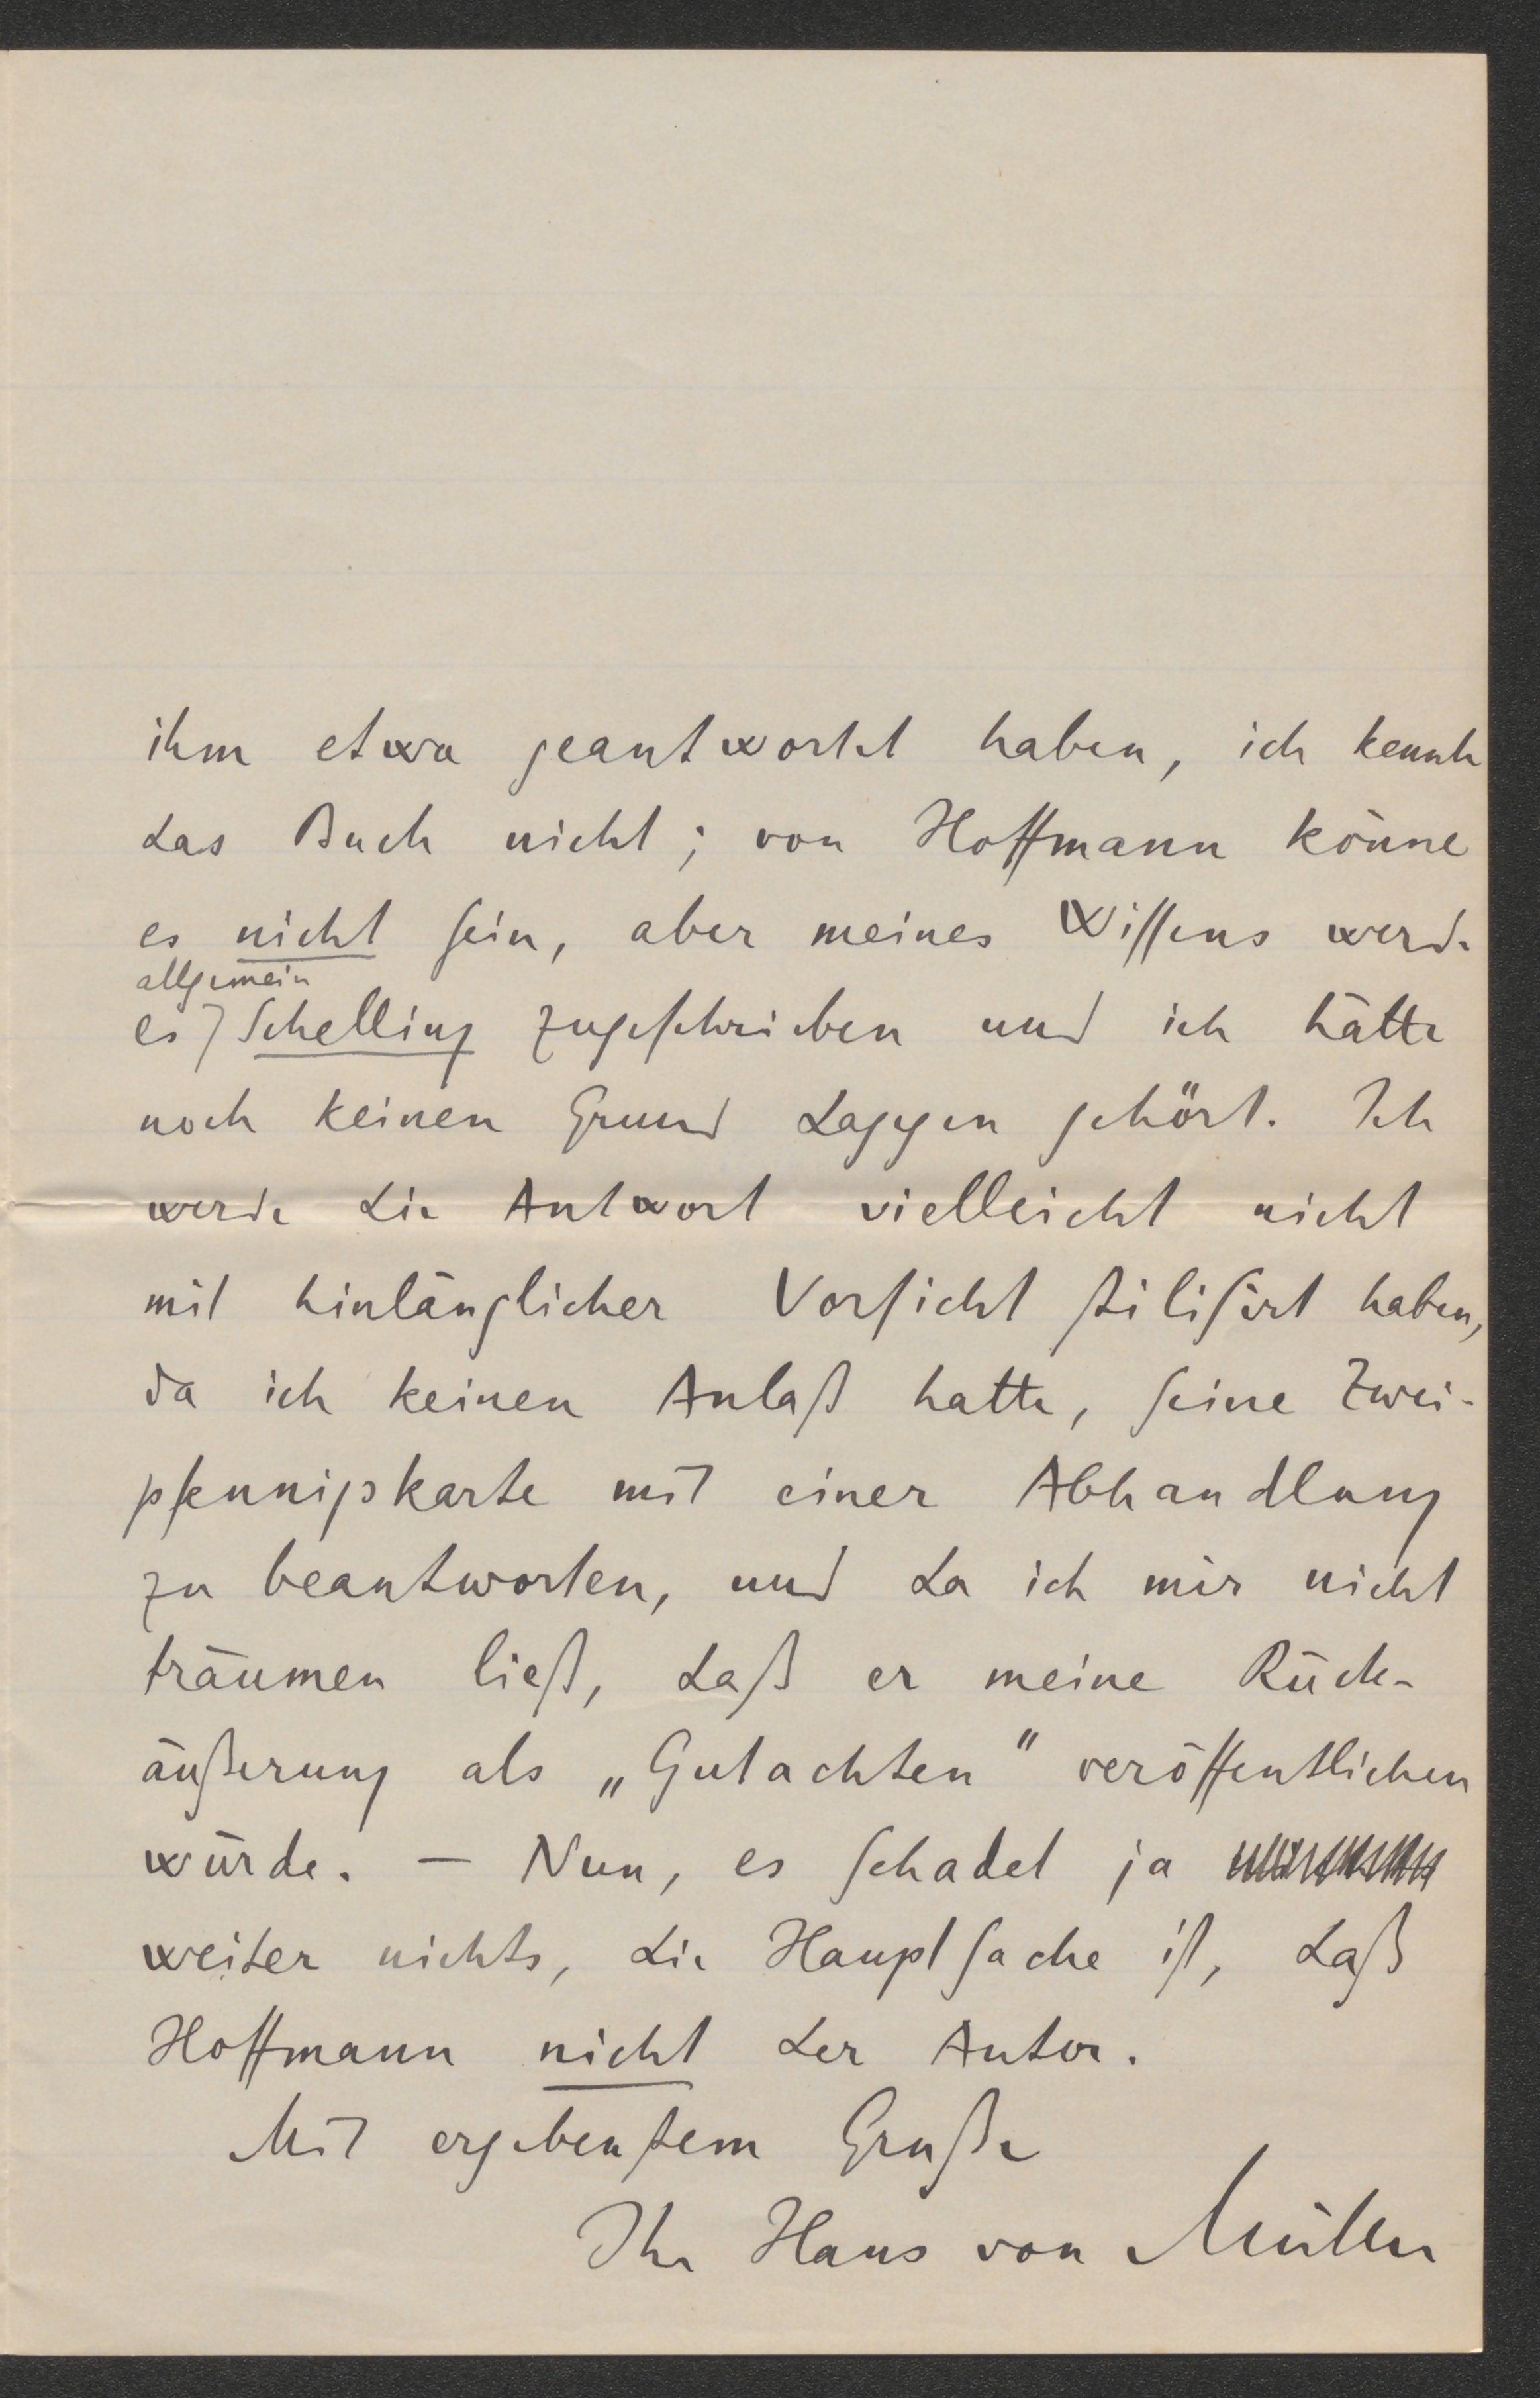 ihm etwa geantwortet haben, ich kennte
das Buch nicht; von Hoffmann könne
es nicht sein, aber meines Wissens werde
allgemein
es Schelling zugeschrieben und ich hätte
noch keinen Grund dagegen gehört. Ich
werde die Antwort vielleicht nicht
mit hinlänglicher Vorsicht stilisirt haben,
da ich keinen Anlaß hatte, seine Zwei-
pfennigskarte mit einer Abhandlung
zu beantworten, und da ich mir nicht
träumen ließ, daß er meine Rück-
äußerung als „Gutachten" veröffentlichen
würde. — Nun, es schadet ja
weiter nichts, die Hauptsache ist, daß
Hoffmann nicht der Autor.
Mit ergebenstem Gruße
Ihr Hans von Müller